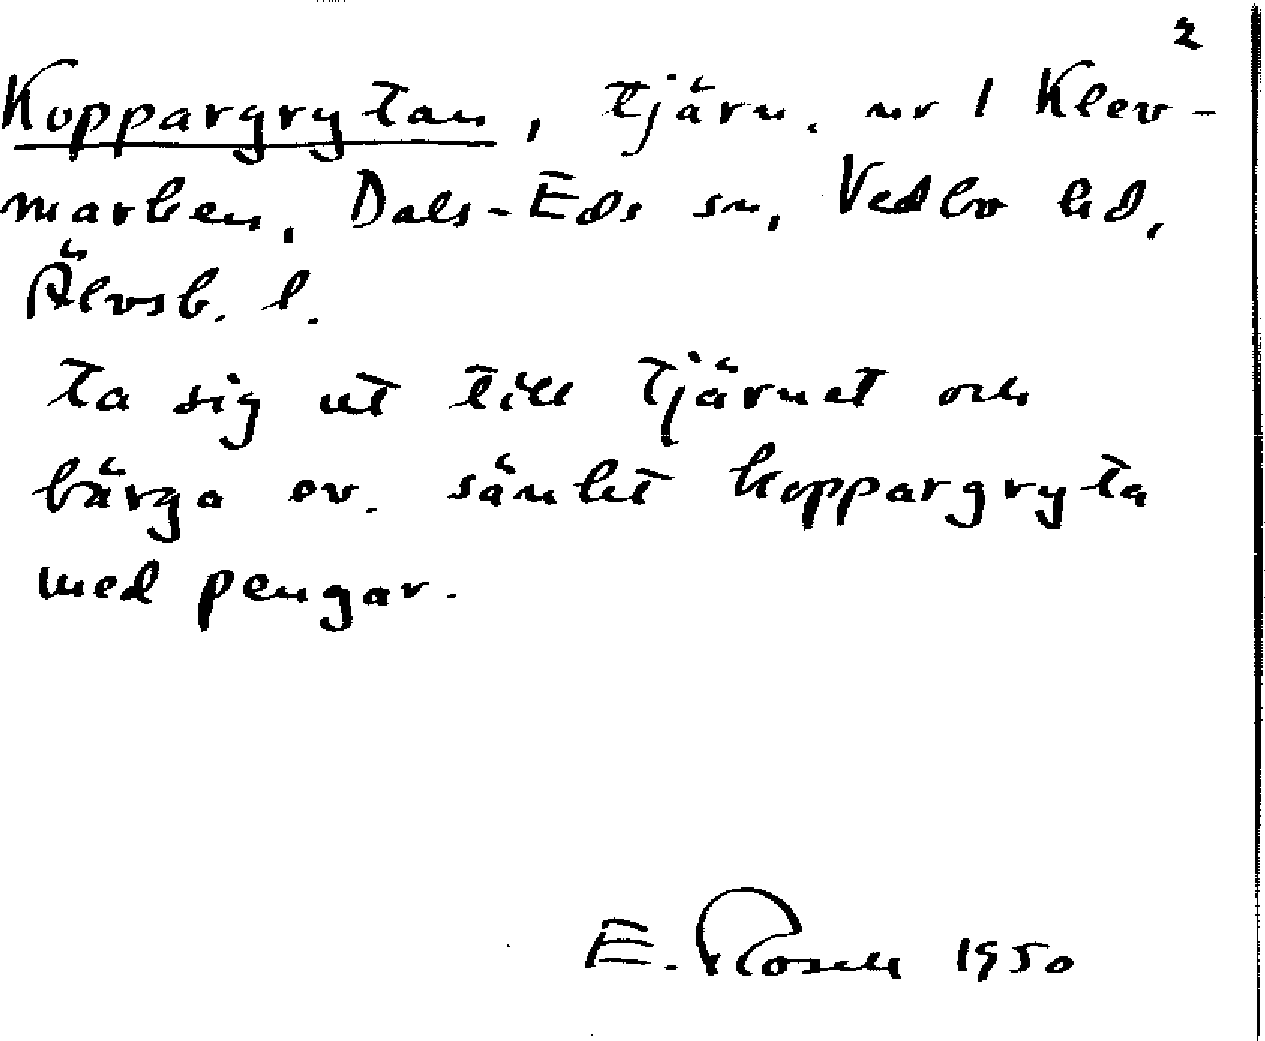 2
Koppargrytan, tjärn. nr 1 Klev-
marken, Dals-Eds sn, Vedbo hd,
Älvsb. l.
ta sig ut till tjärnet och
bärga ev. sänkt koppargryta
med pengar.
E. Rosell 1950